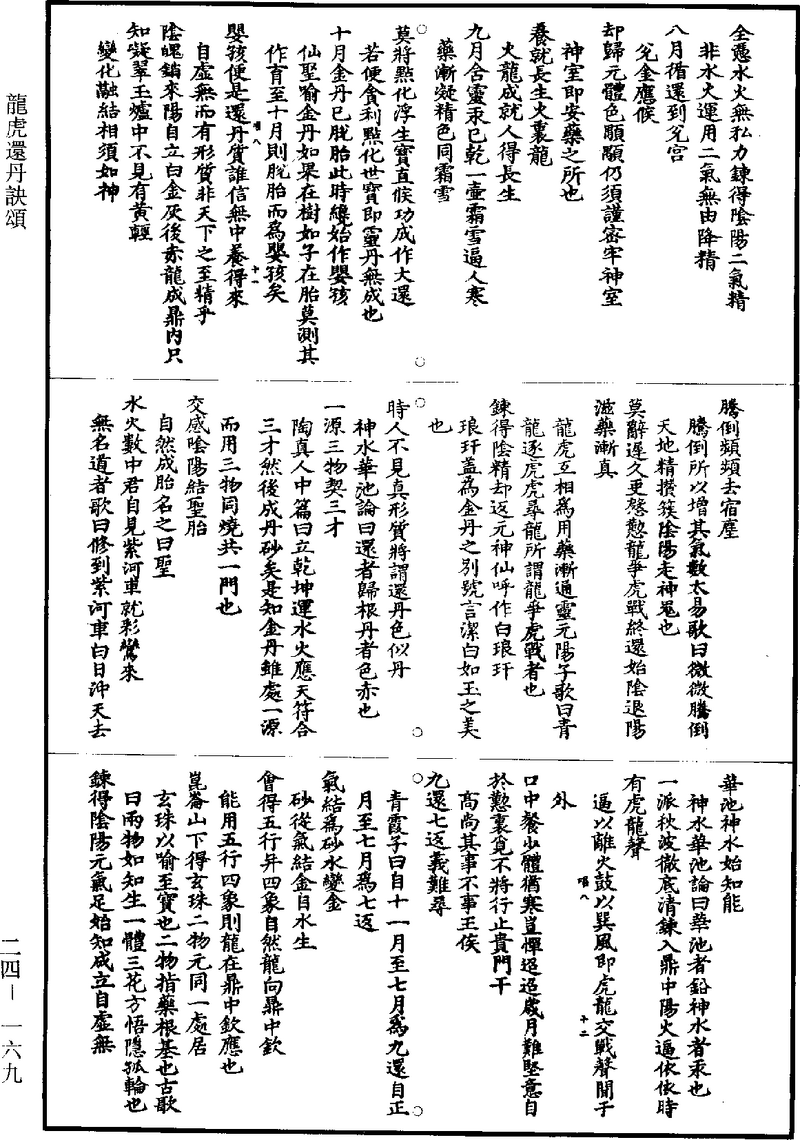 全憑水火無私力鍊得陰陽二氣精
非水火運用二氣無由降精
八月循還到兌宮
兌金應候
却歸元體色顒顒仍須謹密牢神室
神室即安藥之所也
養就長生火裏龍
火龍成就人得長生
九月含靈汞已乾一壺霜雪逼人寒
藥漸凝精色同霜雪
莫將點化浮生寶直候功成作大還
若便貪利點化世寶即靈丹無成也
十月金丹已脫胎此時纔始作嬰孩
仙聖喻金丹如果在樹如子在胎莫測其
作育至十月則脫胎而為嬰孩矣
唱八 十一
嬰孩便是還丹質誰信無中養得來
自虛無而有形質非天下之至精乎
陰魄銷來陽自立白金灰後赤龍成鼎內只
知凝翠玉爐中不見有黃輕
變化融結相須如神
騰倒頻頻去宿塵
騰倒所以增其氣數太易歌曰微微騰倒
天地精攢簇陰陽走神鬼也
莫辭遲久更慇懃龍爭虎戰終還始陰退陽
滋藥漸真
龍虎互相為用藥漸通靈元陽子歌曰青
龍逐虎虎尋龍所謂龍爭虎戰者也
鍊得陰精却返元神仙呼作白琅玕
琅玕蓋為金丹之別號言潔白如玉之美
也
時人不見真形質將謂還丹色似丹
神水華池論曰還者歸根丹者色赤也
一源三物契三才
陶真人中篇曰立乾坤運水火應天符合
三才然後成丹砂矣是知金丹雖處一源
而用三物同燒共一門也
交感陰陽結聖胎
自然成胎名之曰聖
水火數中君自見紫河車就彩鸞來
無名道者歌曰修到紫河車白日沖天去
華池神水始知能
神水華池論曰華池者鉛神水者汞也
一派秋波徹底清鍊入鼎中陽火逼依依時
有虎龍聲
逼以離火鼓以巽風即虎龍交戰聲聞于
外
唱八 十二
口中餐少體猶寒豈憚迢迢歲月難堅意自
於懃裏覓不將行止貴門干
高尚其事不事王侯
九還七返義難尋
青霞子曰自十一月至七月為九還自正
月至七月為七返
氣結為砂水變金
砂從氣結金自水生
會得五行并四象自然龍向鼎中欽
能用五行四象則龍在鼎中欽應也
崑崙山下得玄珠二物元同一處居
玄珠以喻至寶也二物指藥根基也古歌
曰兩物如知生一體三花方悟隱孤輪也
鍊得陰陽元氣足始知成立自虛無
龍虎還丹訣頌
二四—一六九